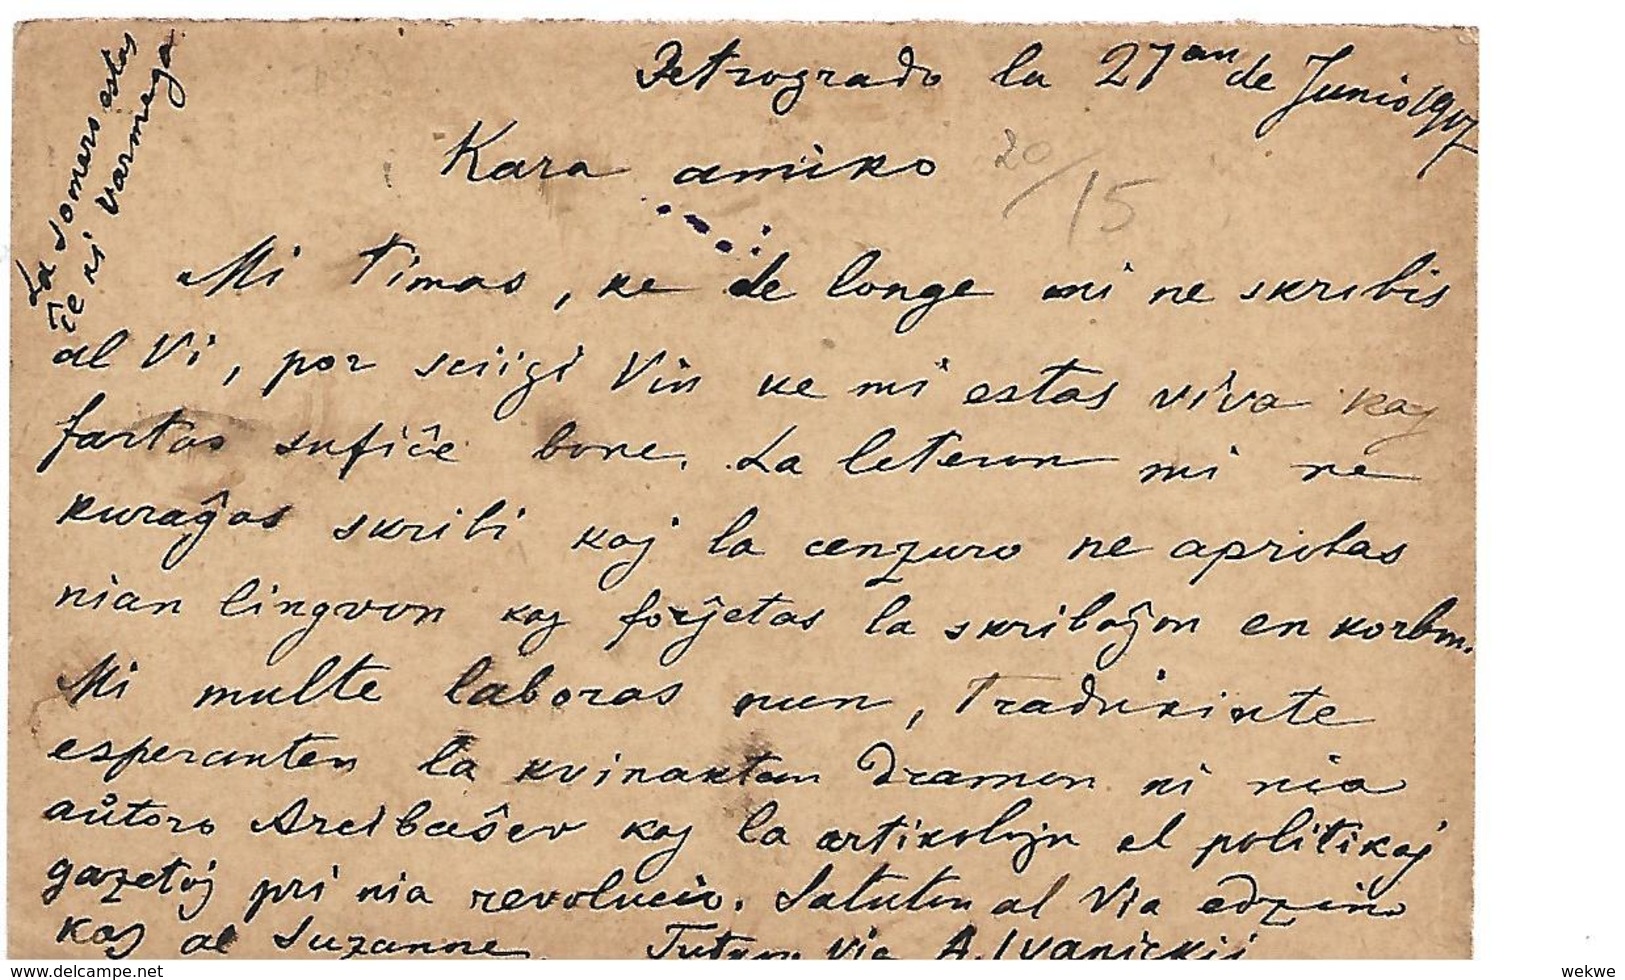 Petrogrado la 27an de Junio 1917
Kara amiko
20/15
Mi timas, ke de longe mi ne skribis
al Vi, por sciigi Vin ke mi estas viva kaj
fartas sufiĉe bone. La leteron mi ne
kuraĝas skribi kaj la cenzuro ne aprobas
nian lingvon kaj forĵetas la skribaĵon en korbon.
Mi multe laboras nun, tradukinte
esperanten la kvinaktan dramon ni nia
aŭtoro Arcibaŝev kaj la artikolojn el politikaj
gazetoj pri nia revolucio. Saluton al Via edzino
kaj al Suzanne. Tutan Via A. Ivanickij
La somero estas
ĉe ni varmega
www.delcampe.net
wekwe